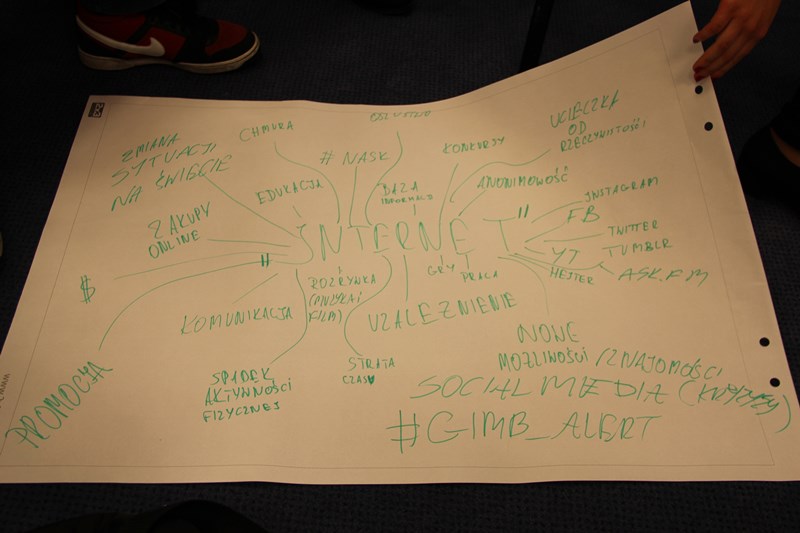 ZMIANA
SYTUACJI
NA ŚWIECIE
CHMURA
# NASK
KONKURSY
UCIECZKA
OD
RZECZYWISTOŚCI
EDUKACJA
BAZA
INFORMACJI
ANONIMOWOŚĆ
ZAKUPY
ONLINE
INTERNET
INSTAGRAM
FB
TWITTER
TUMBLR
YT
HEJTER
ASK.FM
$
KOMUNIKACJA
ROZRYWKA
(MUZYKA I
FILM)
GRY
PRACA
UZALEŻNIENIE
PROMOCJA
SPADEK
AKTYWNOŚCI
FIZYCZNEJ
STRATA
CZASU
NOWE
MOŻLIWOŚCI / ZNAJOMOŚCI
SOCIAL MEDIA
#GIMB_ALERT